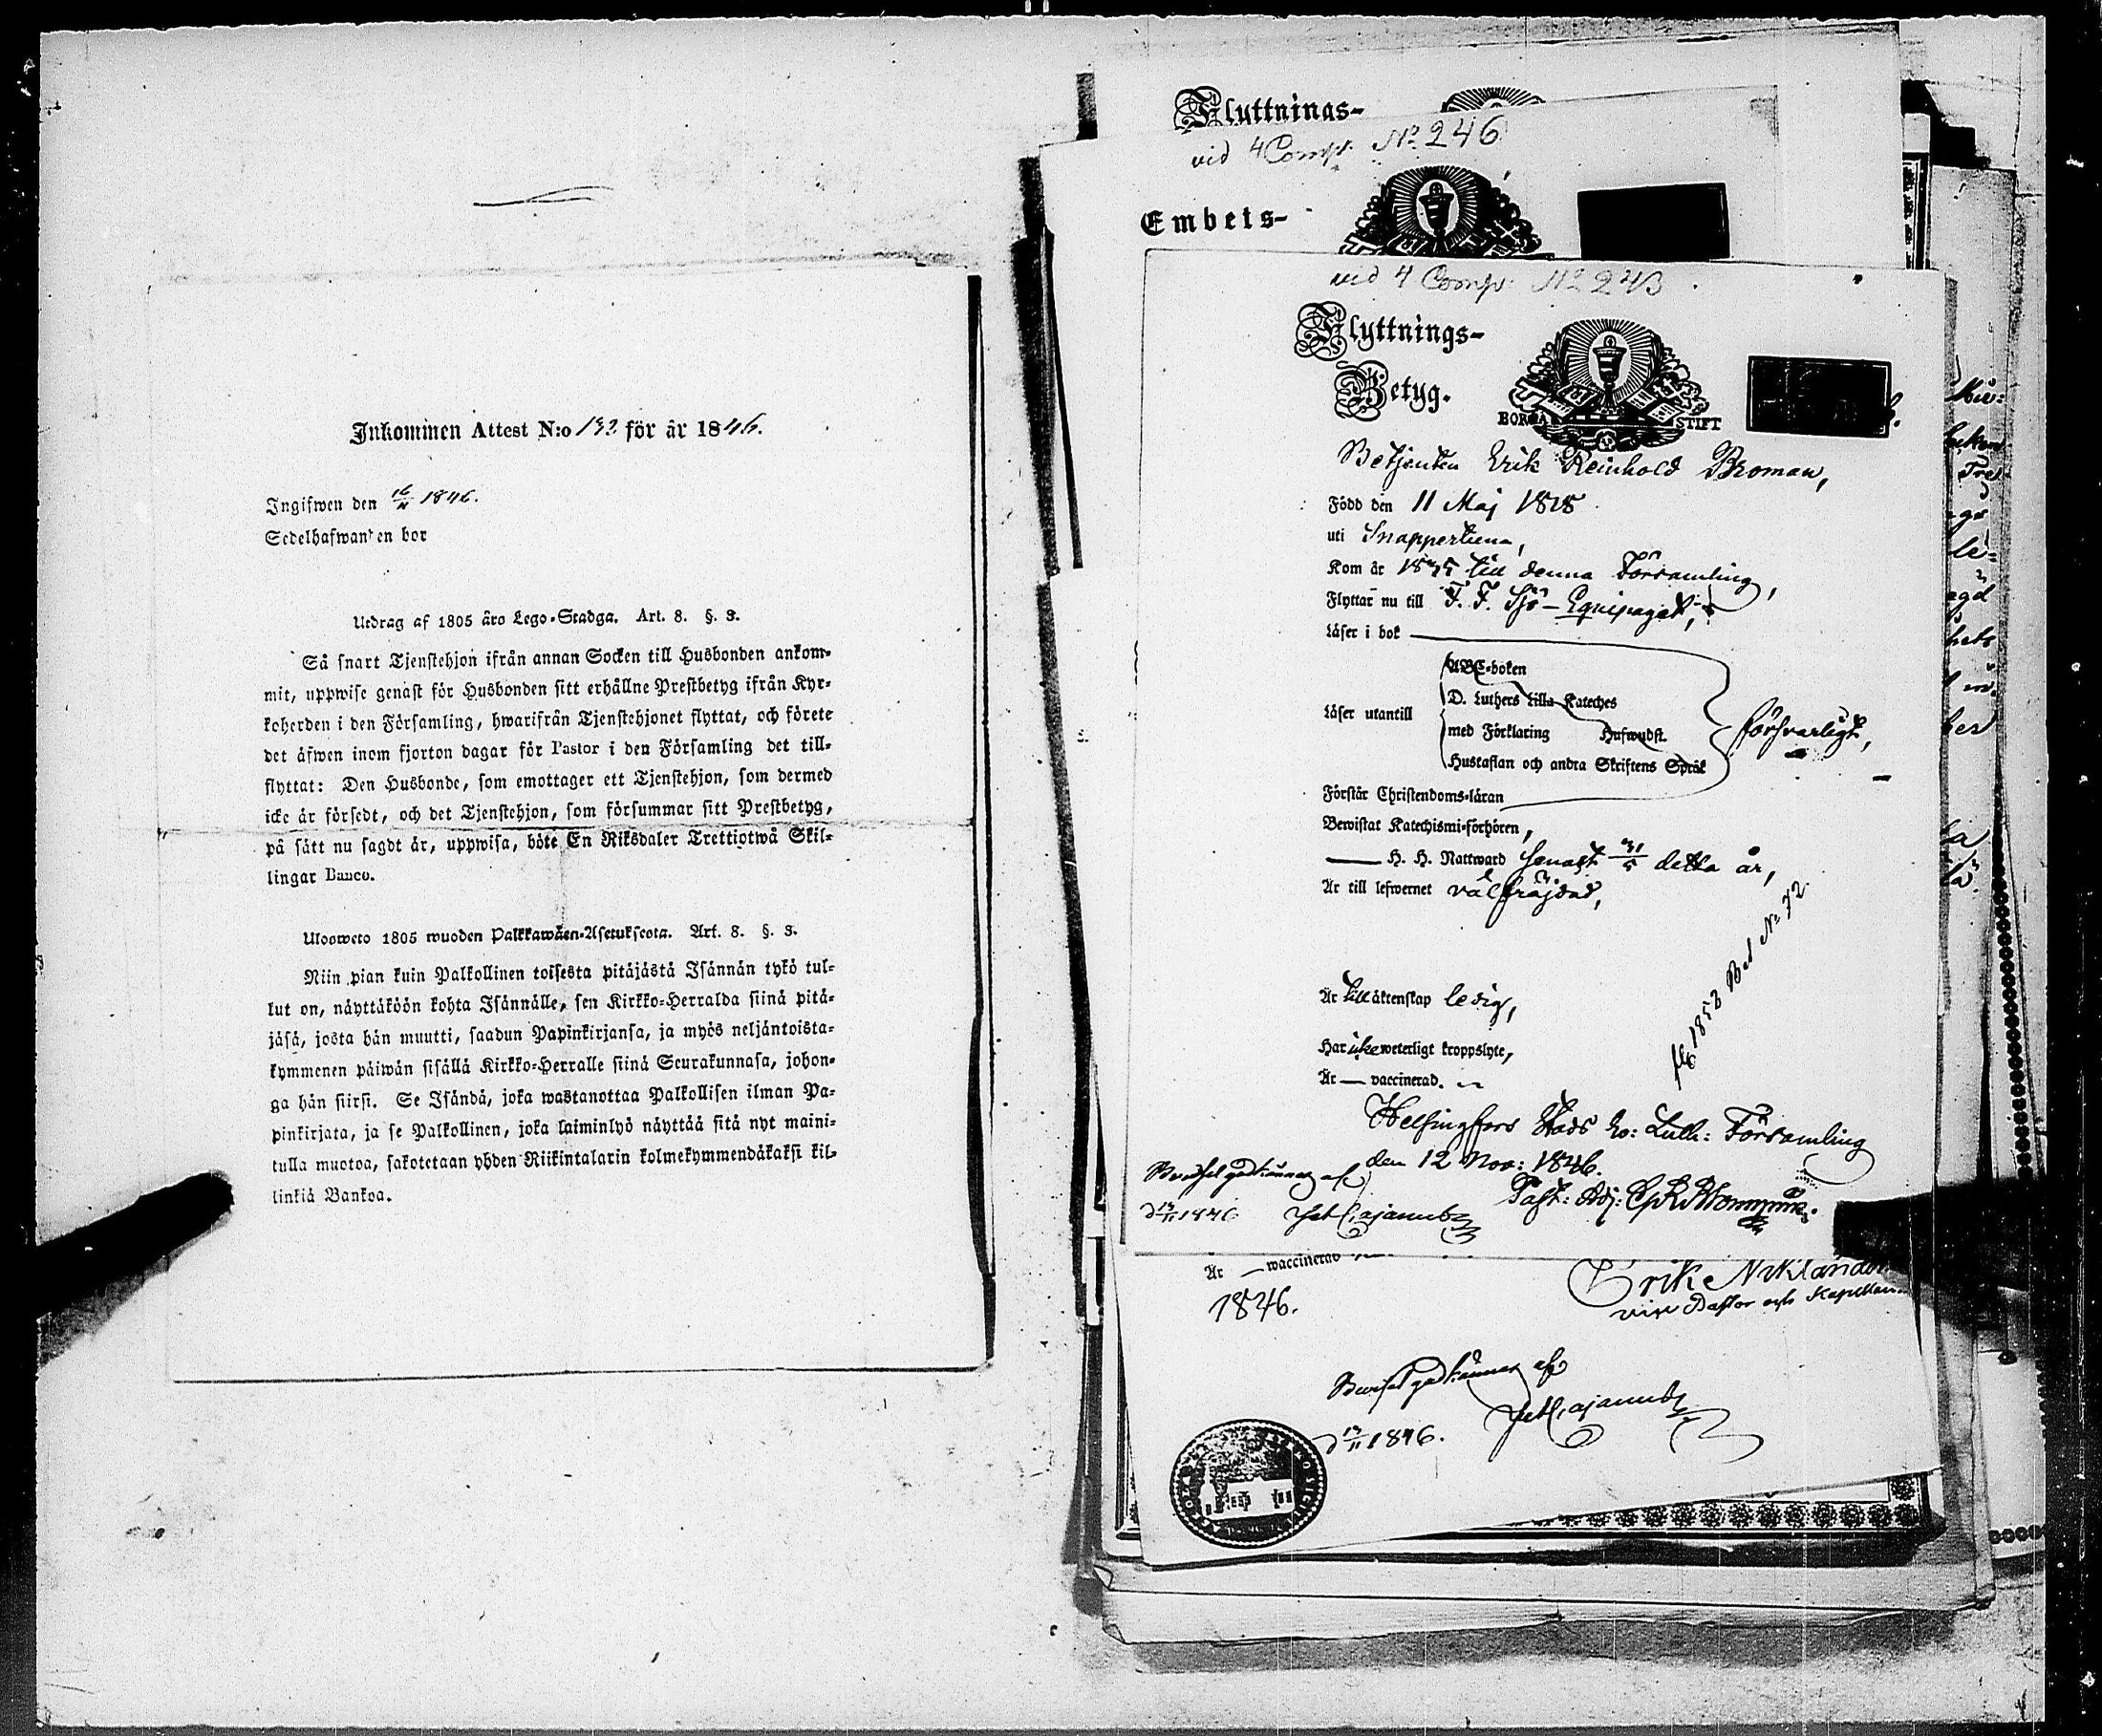 Inkommen Attest N:o 132 för år 1846.
Ingifwen den 16/11 1846.
Sedelhafwanden bor
Utdrag af 1805 års Lego-Stadga. Art. 8. §. 3.
Så snart Tjenstehjon ifrån annan Socken till Husbonden ankom-
mit, uppwise genast för Husbonden sitt erhållne Prestbetyg ifrån Kyr-
koherden i den Församling, hwarifrån Tjenstehjonet flyttat, och förete
det äfwen inom fjorton dagar för Pastor i den Församling det till-
flyttat: Den Husbonde, som emottager ett Tjenstehjon, som dermed
icke är försedt, och det Tjenstehjon, som försummar sitt Prestbetyg,
på sätt nu sagdt är, uppwisa, böte En Riksdaler Trettiotwå Skil-
lingar Banco.
Ulosweto 1805 wuoden Palkkawäen-Asetuksesta. Art. 8. §. 3.
Niin pian kuin Palkollinen toisesta pitäjästä Isännän tykö tul-
lut on, näyttäköön kohta Isännälle, sen Kirkko-Herralda siinä pitä-
jäsä, josta hän muutti, saadun Papinkirjansa, ja myös neljäntoista-
kymmenen päiwän sisällä Kirkko-Herralle siinä Seurakunnasa, johon-
ga hän siirsi. Se Isändä, joka wastanottaa Palkollisen ilman Pa-
pinkirjata, ja se Palkollinen, joka laiminlyö näyttää sitä nyt maini-
tulla muotoa, sakotetaan yhden Riikintalarin kolmekymmendäkaksi kil-
linkiä Bankoa.
Flyttnings-
vid 4 Comp. No 246
Embets-
vid 4 Comp. No 243
Flyttnings-
Betyg.
BORGÅ STIFT
Betjenten Erik Reinhold Broman,
Född den 11 Maj 1828
uti Snappertuna,
Kom år 1845 till denna Församling,
Flyttar nu till F. F. Sjö-Equipaget,
Läser i bok
ABC-boken
D. Luthers Lilla Kateches
Läser utantill
med Förklaring Hufwudst.
försvarligt,
Hustaflan och andra Skriftens Språk
Förstår Christendoms-läran
Bewistat Katechismi-förhören,
H. H. Nattward senast 31/5 detta år,
Är till lefwernet välfräjdad,
1852 Bet No 72
Är till äktenskap ledig,
Har icke weterligt kroppslyte,
Är — vaccinerad.
Helsingfors Stads Ev: Luth: Församling
den 12 Nov: 1846.
Past: Adj:
d 13/11 1846
Är — waccinerad
1846.
Erik Niklander
vice Pastor och Kapellan
d 13/11 1846.